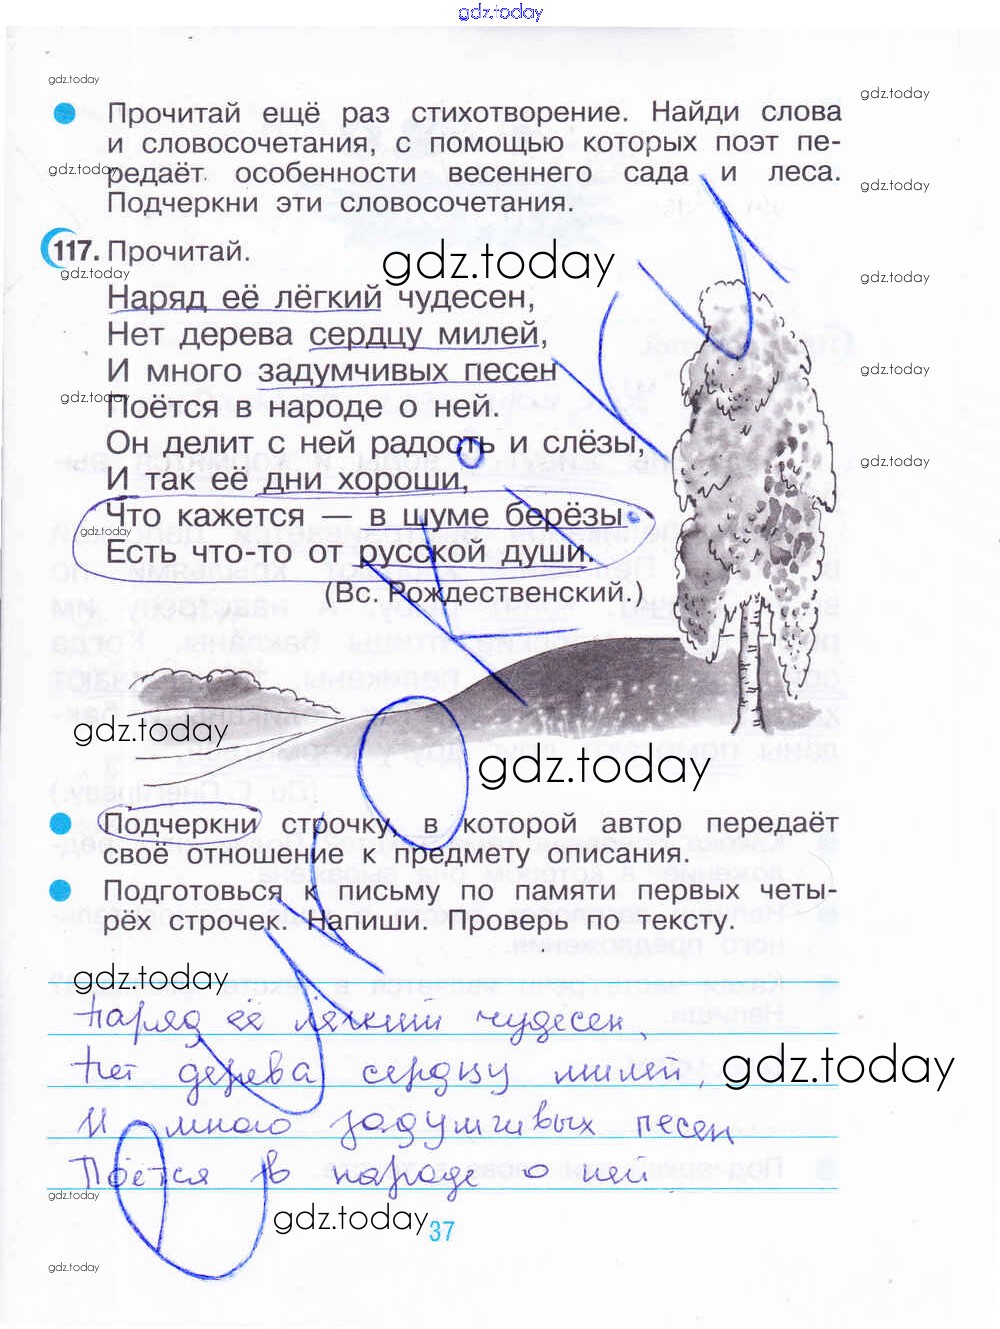 gdz.today
gdz.today
gdz.today
Прочитай ещё раз стихотворение. Найди слова
и словосочетания, с помощью которых поэт пе-
gdz.today
редаёт особенности весеннего сада и леса.
gdz.today
Подчеркни эти словосочетания.
117. Прочитай.
gdz.today
gdz.today
gdz.today
Наряд её лёгкий чудесен,
Нет дерева сердцу милей,
И много задумчивых песен
gdz.today
gdz.today
Поётся в народе о ней.
Он делит с ней радость и слёзы,
gdz.today
И так её дни хороши,
Что кажется — в шуме берёзы
gdz.today
Есть что-то от русской души.
(Вс. Рождественский.)
gdz.today
gdz.today
Подчеркни строчку, в которой автор передаёт
своё отношение к предмету описания.
Подготовься к письму по памяти первых четы-
рёх строчек. Напиши. Проверь по тексту.
gdz.today
Наряд её лёгкий чудесен,
Нет дерева сердцу милей,
gdz.today
И много задумчивых песен
Поётся в народе о ней
gdz.today
gdz.today
37
gdz.today